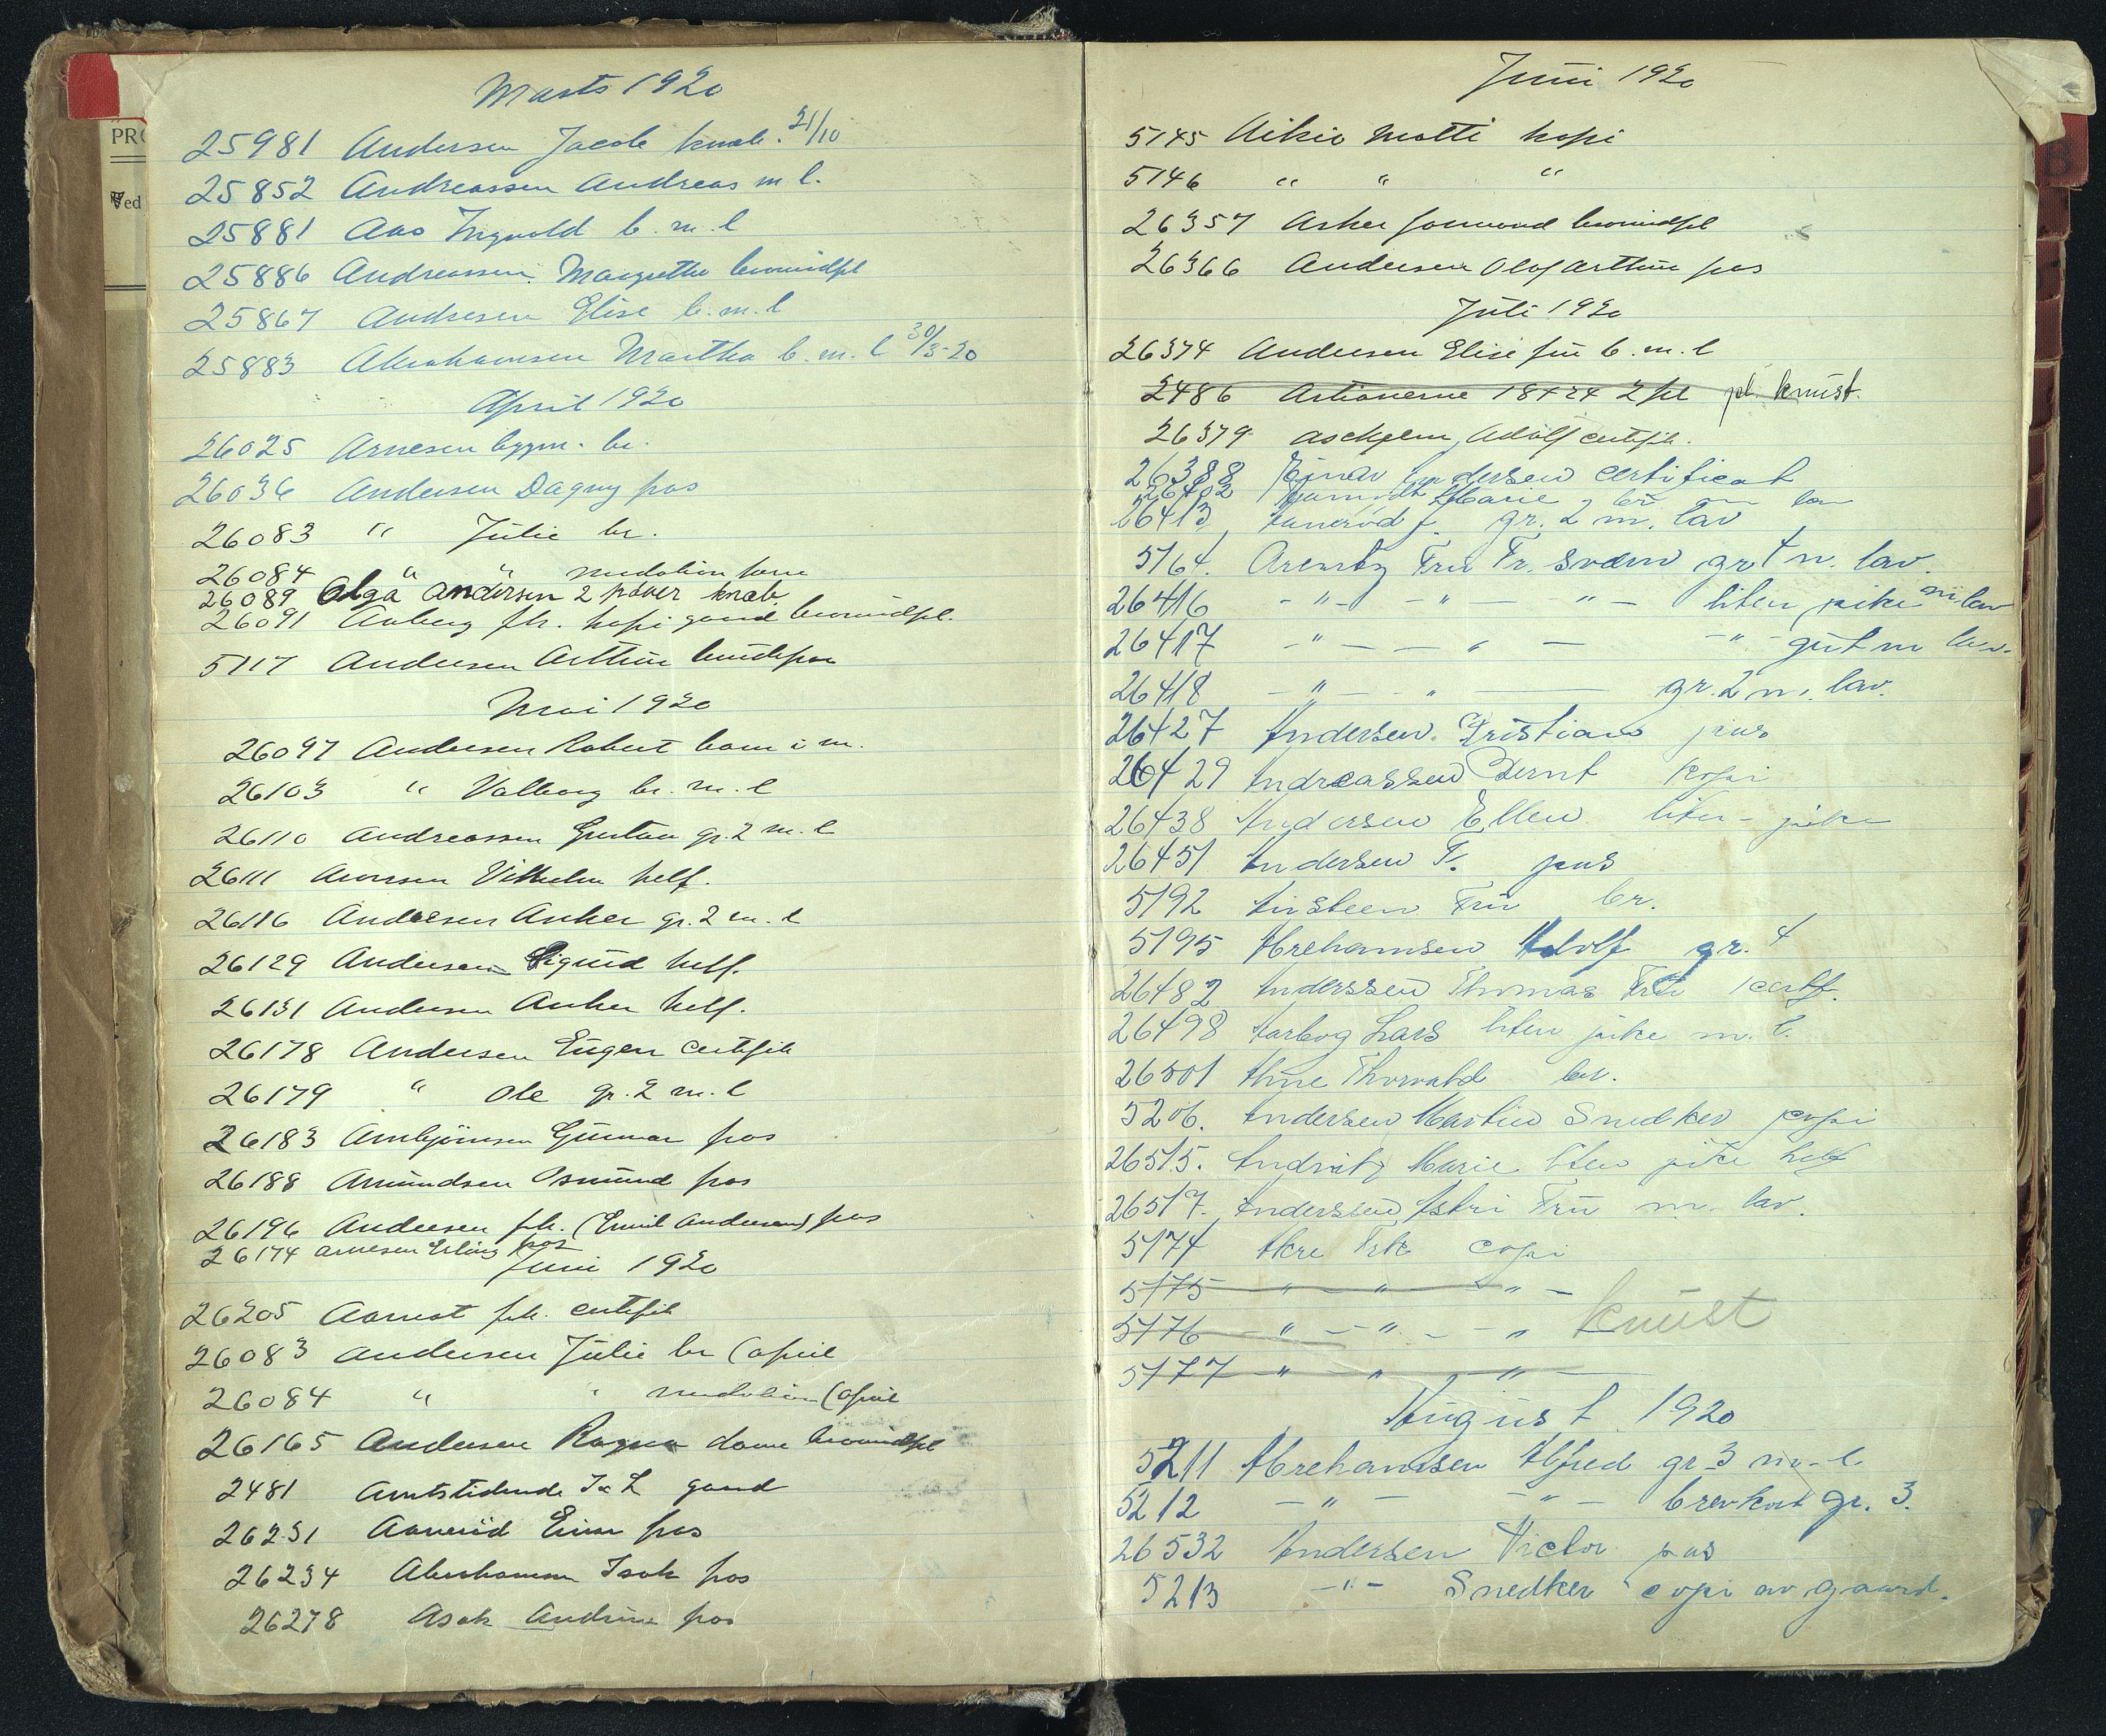 Marts 1920
25981 Andersen Jacob knab. 21/10
25852 Andreassen Andreas m l.
25881 Aas Ingvald b. m. l
25886 Andreassen Margrethe
25867 Andresen Elise b. m. l
25883 Abrahamsen Martha b. m. l 30/3-20
April 1920
26025 Arnesen br.
26036 Andersen Dagny pas
26083 " Julie br.
26084 " "
26089 Olga Andersen 2 knab
26091 kopi
5117 Andersen Arthur
Mai 1920
26097 Andersen Robert barn i m.
26103 " Valborg br. m. l
26110 Andreassen Gustav gr. 2 m. l
26111 Aronsen Vilhelm helf.
26116 Andersen Anker gr. 2 m. l
26129 Andersen Sigurd helf.
26131 Andersen Anker helf.
26178 Andersen Eugen certifik
26179 " Ole gr. 2 m. l
26183 Arnbjørnsen Gunnar pas
26188 Amundsen Osmund pas
26196 Andersen frk. (Emil Andersen) pas
26174 Arnesen Erling pas
Juni 1920
26205 frk. certifik
26083 Andersen Julie br (april
26084 " " (april
26165 Andersen Ragna dame
2481 Amtstidende gaard
26231 Aanerød Einar pas
26234 Abrahamsen Isak pas
26278 Asak pas
PRO
Ved
Juni 1920
5145 Aikio Matti kopi
5146 " " "
26357 Asker
26366 Andersen Olaf Arthur pas
Juli 1920
26374 Andersen Elise fru b. m. l
2486 18+24 2 pl pl. knust.
26379 Adolf certifik.
26388 Einar Andersen certificat
26402 Marie
26413 gr. 2 m. lav
5164. Arentz Fru Fr. Svend gr 4 m. lav.
26416 - " - - " - " - liten pike m lav
26417 - " - - " - - " - gut m lav.
26418 - " - - " - gr. 2 m. lav.
26427 Andersen Kristian pas
26429 Andreassen Bernt Kopi
26438 Andersen Ellen liten pike
26451 Andersen Fr. pas
5192 Austeen Fru br.
5195 Abrehamsen Adolf gr. 4
26482 Anderssen Thomas Fru certf.
26498 Aarbog Lars liten pike m. l.
26501 Thorvald br.
5206. Andersen Martin Snedker copi
26515. Marie liten pike helf
26517. Anderssen Astri Fru m. lav.
5174 Akre Frk copi
5175 " " "
5176 - " - " - " knust
5177 - " " "
August 1920
5211 Abrehamsen Alfred gr 3 m. l.
5212 - " - - " - brevkort gr. 3.
26532 Andersen Victor pas
5213 - " - Snedker copi av gaard.
B